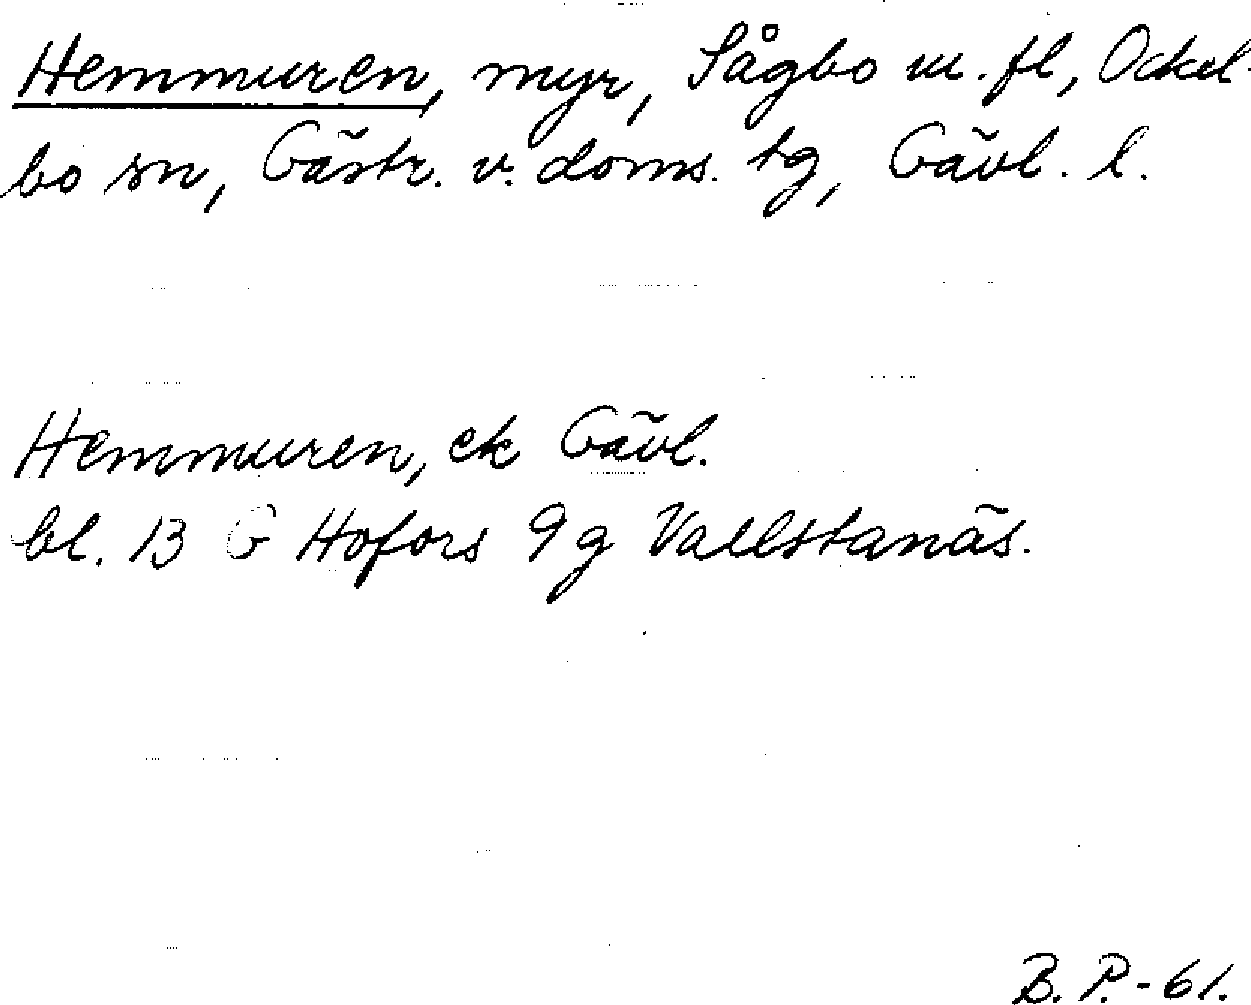 Hemmuren, myr, Sågbo m. fl, Ockel-
bo sn, Gästr. v. doms. tg, Gävl. l.
Hemmuren, ek Gävl.
bl. 13 G Hofors 9g Vallstanäs.
B. P. - 61.